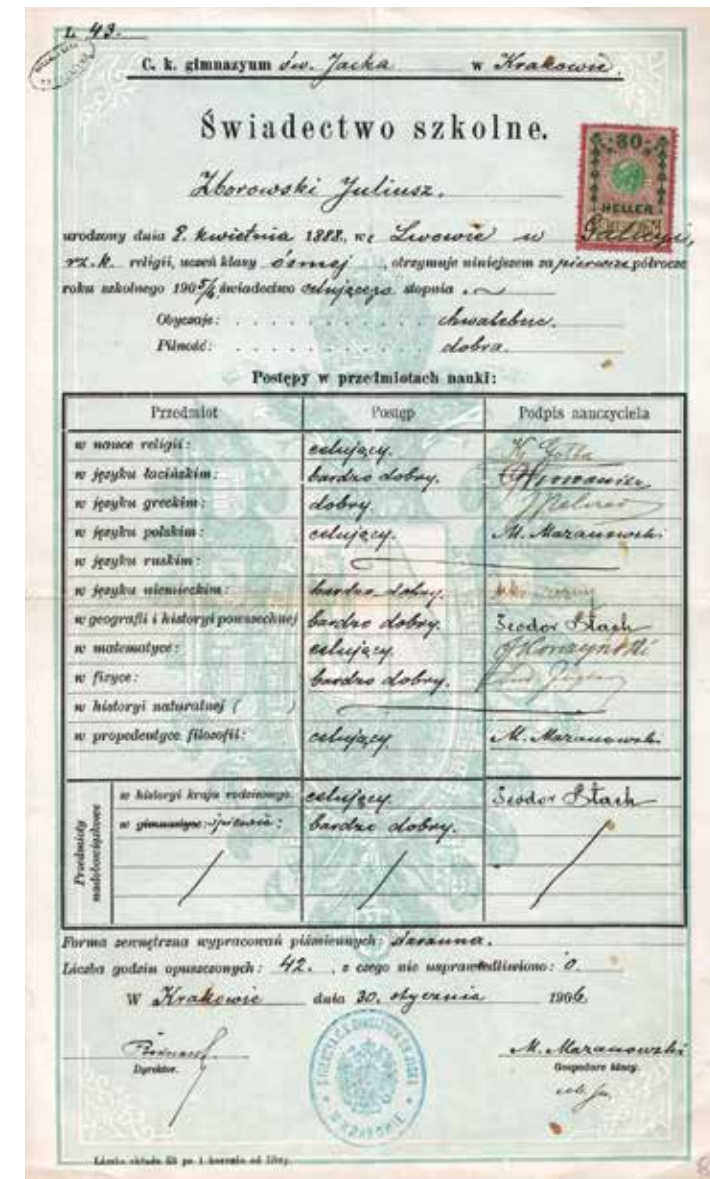 L. 43.
C. k. gimnazyum św. Jacka w Krakowie.
Świadectwo szkolne.
80
HELLER
Zborowski Juliusz.
urodzony dnia 8. kwietnia 1888., we Lwowie w Galicyi,
rz. k. religii, uczeń klasy ósmej, otrzymuje niniejszem za pierwsze półrocze
roku szkolnego 1905/6 świadectwo celującego stopnia.
Obyczaje: chwalebne.
Pilność: dobra.
Postępy w przedmiotach nauki:
Przedmiot Postęp Podpis nauczyciela
w nauce religii: celujący.
w języku łacińskim: bardzo dobry.
w języku greckim: dobry.
w języku polskim: celujący. M. Mazanowski
w języku ruskim:
w języku niemieckim: bardzo dobry.
w geografii i historyi powszechnej bardzo dobry. Teodor Stach
w matematyce: celujący.
w fizyce: bardzo dobry.
w historyi naturalnej ( )
w propedeutyce filozofii: celujący. M. Mazanowski
Przedmioty nadobowiązkowe
w historyi kraju rodzinnego. celujący. Teodor Stach
w gimnastyce: śpiewie: bardzo dobry.
Forma zewnętrzna wypracowań piśmiennych: staranna.
Liczba godzin opuszczonych: 42., z czego nie usprawiedliwiono: 0.
W Krakowie dnia 30. stycznia 1906.
Dyrektor.
M. Mazanowski
Gospodarz klasy.